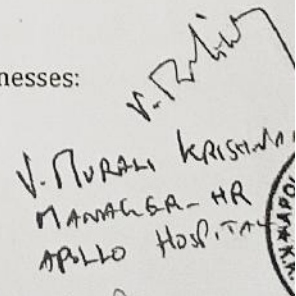 nesses:
V. Murali
V. MURALI KRISHNA
MANAGER - HR
APOLLO HOSPITAL